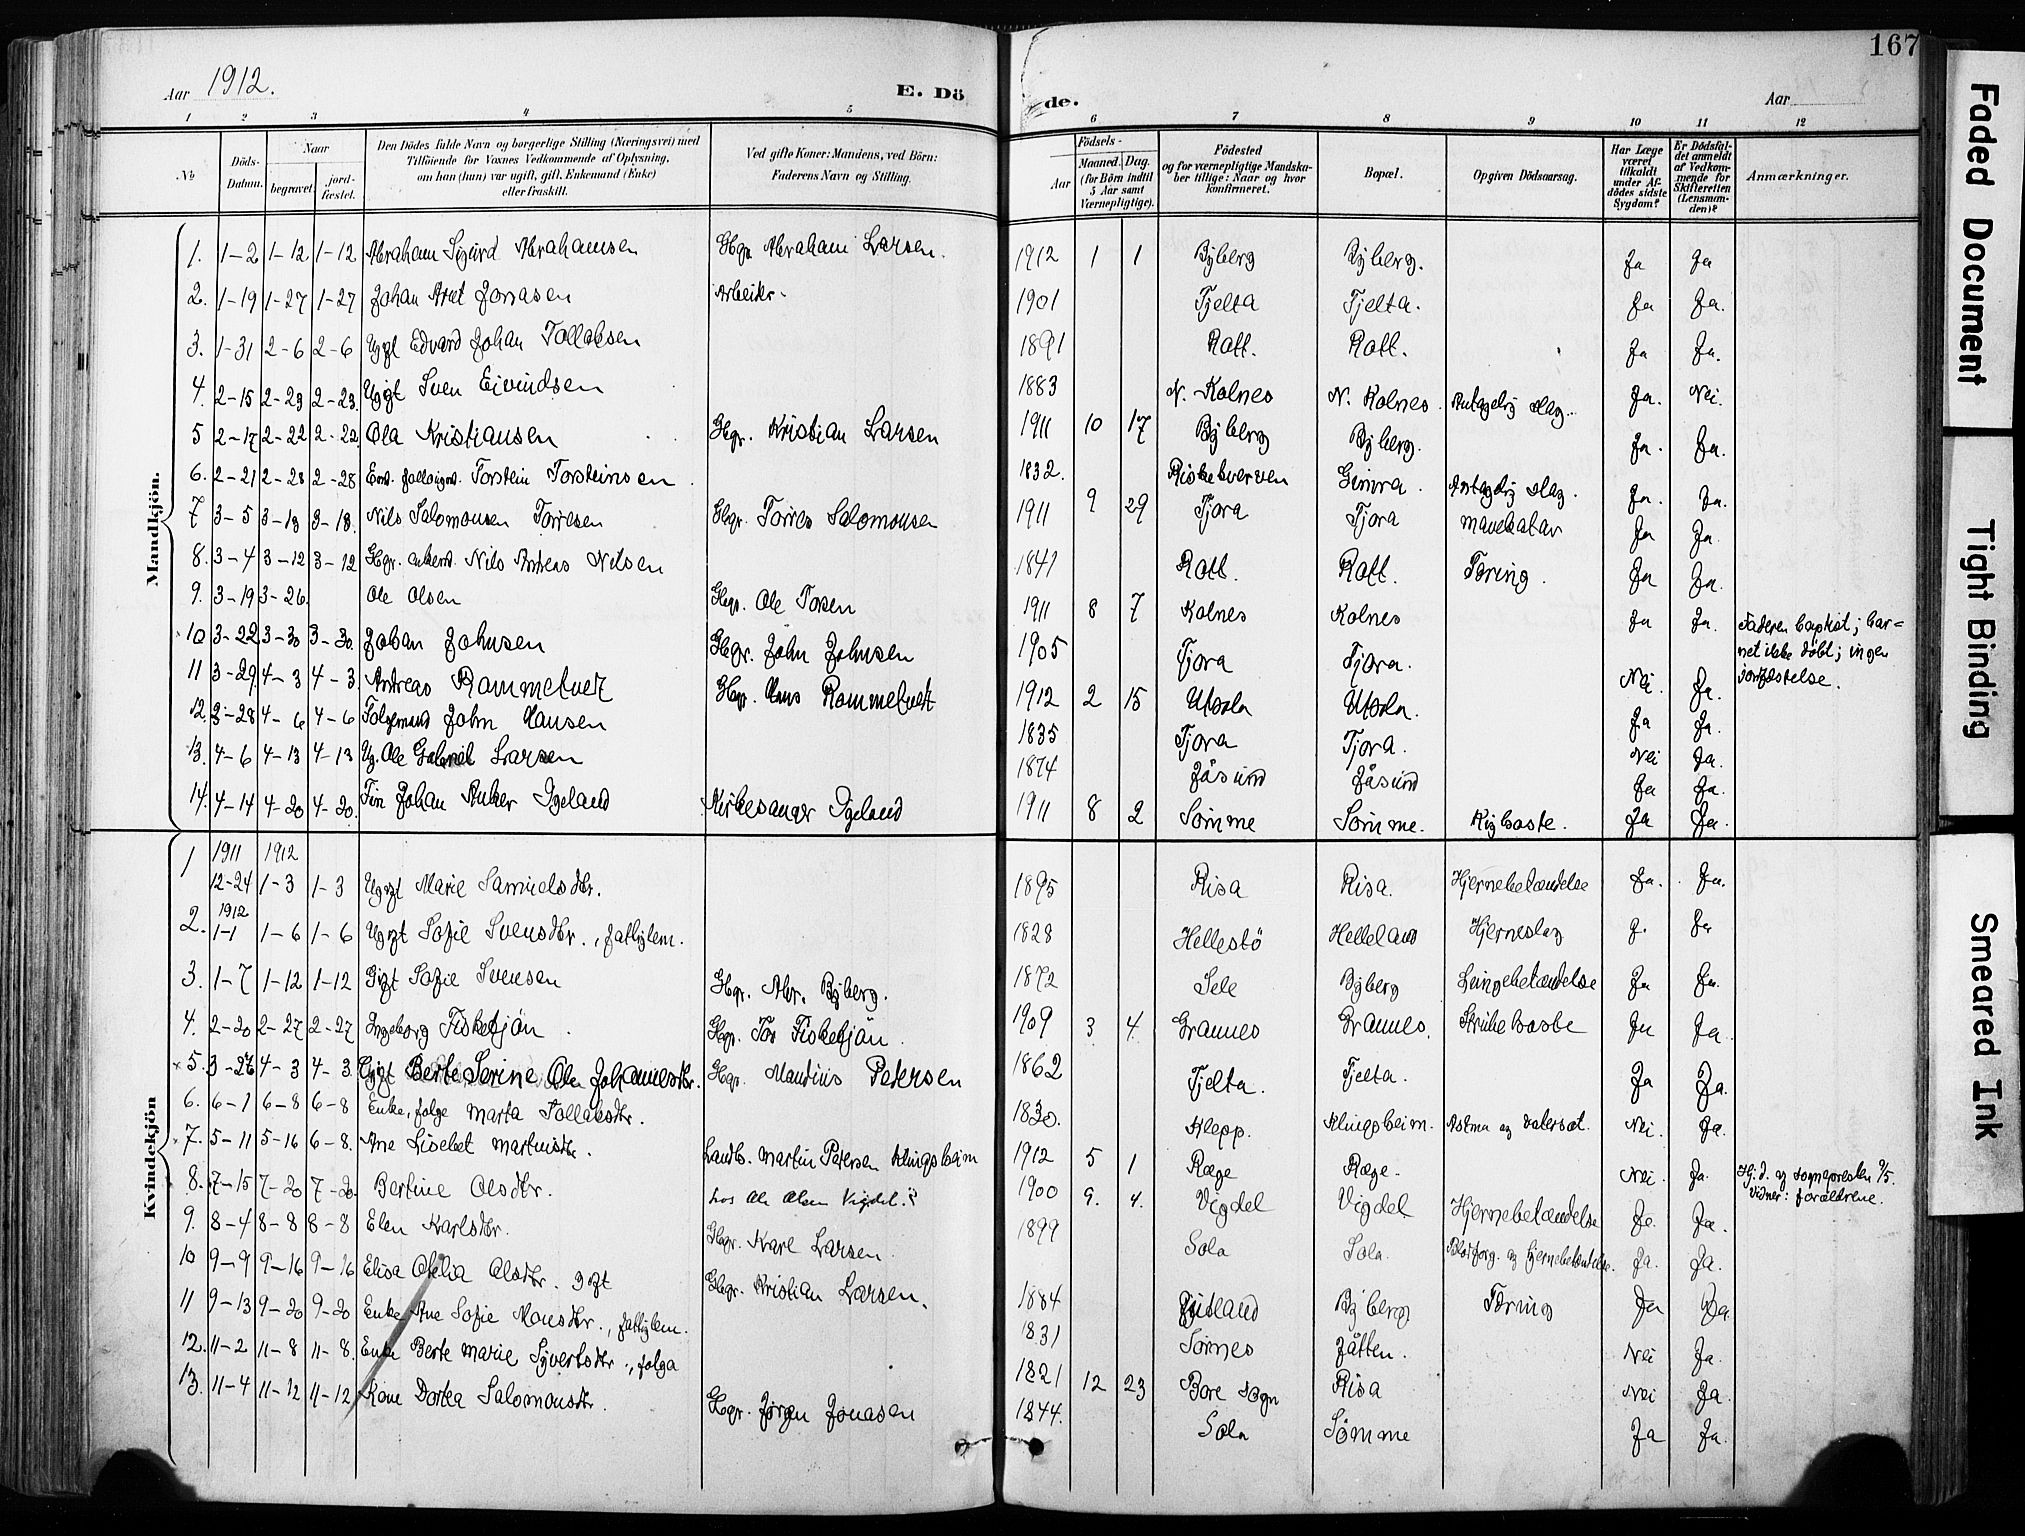 167
Aar 1912.
E. Dö
de.
Aar
1 2 3 4 5 6 7 8 9 10 11 12
No
Döds-Datum.
Naar
begravet.
jord-fæstet.
Den Dödes fulde Navn og borgerlige Stilling (Næringsvei) med
Tilföiende for Voxnes Vedkommende af Oplysning,
om han (hun) var ugift, gift, Enkemand (Enke)
eller fraskilt.
Ved gifte Koner: Mandens, ved Börn:
Faderens Navn og Stilling.
Födsels-
Aar
Maaned. Dag.
(for Börn indtil
5 Aar samt
Værnepligtige).
Födested
og for værnepligtige Mandska-
ber tillige: Naar og hvor
konfirmeret.
Bopæl.
Opgiven Dödsaarsag.
Har Læge
været
tilkaldt
under Af-
dödes sidste
Sygdom?
Er Dödsfal-
det anmeldt
af Vedkom-
mende for
Skifteretten
(Lensman-
den)?
Anmærkninger.
Mandkjön.
1. 1-2 1-12 1-12 Abraham Sigurd Abrahamsen Gbgr. Abraham Larsen. 1912 1 1 Byberg Byberg. Ja Ja
2. 1-19 1-27 1-27 Johan Jonasen Arbeider- 1901 Tjelta Tjelta. Ja Ja.
3. 1-31 2-6 2-6 Ugt Edvard Johan Tollaksen 1891 Rott. Rott. Ja Ja.
4. 2-15 2-23 2-23. Ugift Sven Eivindsen 1883 N. Kolnes N. Kolnes. Antagelig slag. Ja. Nei.
5 2-17 2-22 2-22 Ola Kristiansen Gbgr. Kristian Larsen 1911 10 17 Byberg Byberg. Ja. Ja.
6. 2-21 2-28 2-28 Torstein Torsteinsen 1832. Riskekverven Gimra. Antagelig slag. Ja. Ja.
7 3-5 3-13 3-13. Nils Salomonsen Torresen Gbgr. Torres Salomonsen 1911 9 29 Tjora Tjora mavekatar Ja Ja.
8. 3-4 3-12 3-12 Gbgr. enkem. Nils Andreas Nilsen 1841 Rott. Rott. Tæring. Ja Ja.
9. 3-19 3-26. Ole Olsen Gbgr. Ole Tosen 1911 8 7 Kolnes Kolnes Ja Ja. Faderen baptist; bar=
net ikke döbt; ingen
jordfæstelse.
10 3-22 3-30 3-30. Johan Johnsen Gbgr. John Johnsen 1905 Tjora Tjora. Nei. Ja.
11 3-29. 4-3 4-3. Andreas Rommetvedt Gbgr. Hans Rommetvedt 1912 2 15 Utsola Utsola. Ja Ja.
12. 3-28 4-6 4-6 Folgemand John Hansen 1835 Tjora Tjora. Nei Ja.
13. 4-6 4-13 4-13 Ug. Ole Gabriel Larsen 1874 Jåsund Jåsund Ja Ja.
14. 4-14 4-20 4-20. Fin Johan Anker Igeland Kirkesanger Igeland 1911 8 2 Sömme Sömme. Kighoste. Ja Ja.
Kvindekjön
1 1911 12-24 1912 1-3 1-3 Ugt Marie Samuelsdtr. 1895 Risa Risa. Hjernebetændelse Ja. Ja.
2. 1912 1-1 1-6 1-6 Ugt Sofie Svensdtr., fattiglem. 1828 Hellestö Helleland Hjerneslag J. Ja
3. 1-7 1-12 1-12 Gigt Sofie Svensen Gbgr. Abr. Byberg. 1872 Sele Byberg Lungebetændelse Ja Ja.
4. 2-20 2-27 2-27 Ingeborg Fisketjön. Gbgr. Tor Fisketjön. 1909 3 4 Grannes Grannes. Strubehoste Ja Ja.
5. 3-27 4-3 4-3. Gigt Berte Serine Johannesdtr. Gbgr. Maudius Petersen 1862 Tjelta. Tjelta. Ja Ja.
6. 6-1 6-8 6-8 Enke, folge Marta Tollaksdtr. 1830. Klepp. Klingsheim. Astma og vatersot. Nei. Ja.
7. 5-11 5-16 6-8. Ane Lisebet Martinsdtr. Landb. Martin Petersen Klingsheim 1912 5 1 Ræge Ræge. Nei. Ja. Hj. d. og sognepresten 9/5.
Vidner: forældrene.
8. 7-15 7-20 7-20. Bertine Olsdtr. hos Ole Olsen Vigdel.? 1900 9. 4. Vigdel Vigdel Hjernebetændelse Ja. Ja.
9. 8-4 8-8 8-8 Elen Karlsdtr. Gbgr. Karl Larsen. 1899 Sola Sola. Blodforg. og hjernebetændelse. Ja. Ja.
10 9-9 9-16 9-16 Elisa Ofelia Olsdtr. ggt Gbgr. Kristian Larsen. 1884 Byberg Tæring Ja Ja.
11 9-13 9-20 9-20 Enke Ane Sofie Monsdtr., fattiglem. 1831 Sörnes Jåtten. Nei Ja.
12. 11-2 11-8 11-8. Enke Berte Marie Syvertsdtr., folga 1821 12 23 Bore sogn Risa Nei Ja
13. 11-4 11-12 11-12 Kone Dortea Salomonsdtr. Gbgr. Jörgen Jonasen 1844. Sola Sömme Ja Ja.
Faded Document
Tight Binding
Smeared Ink